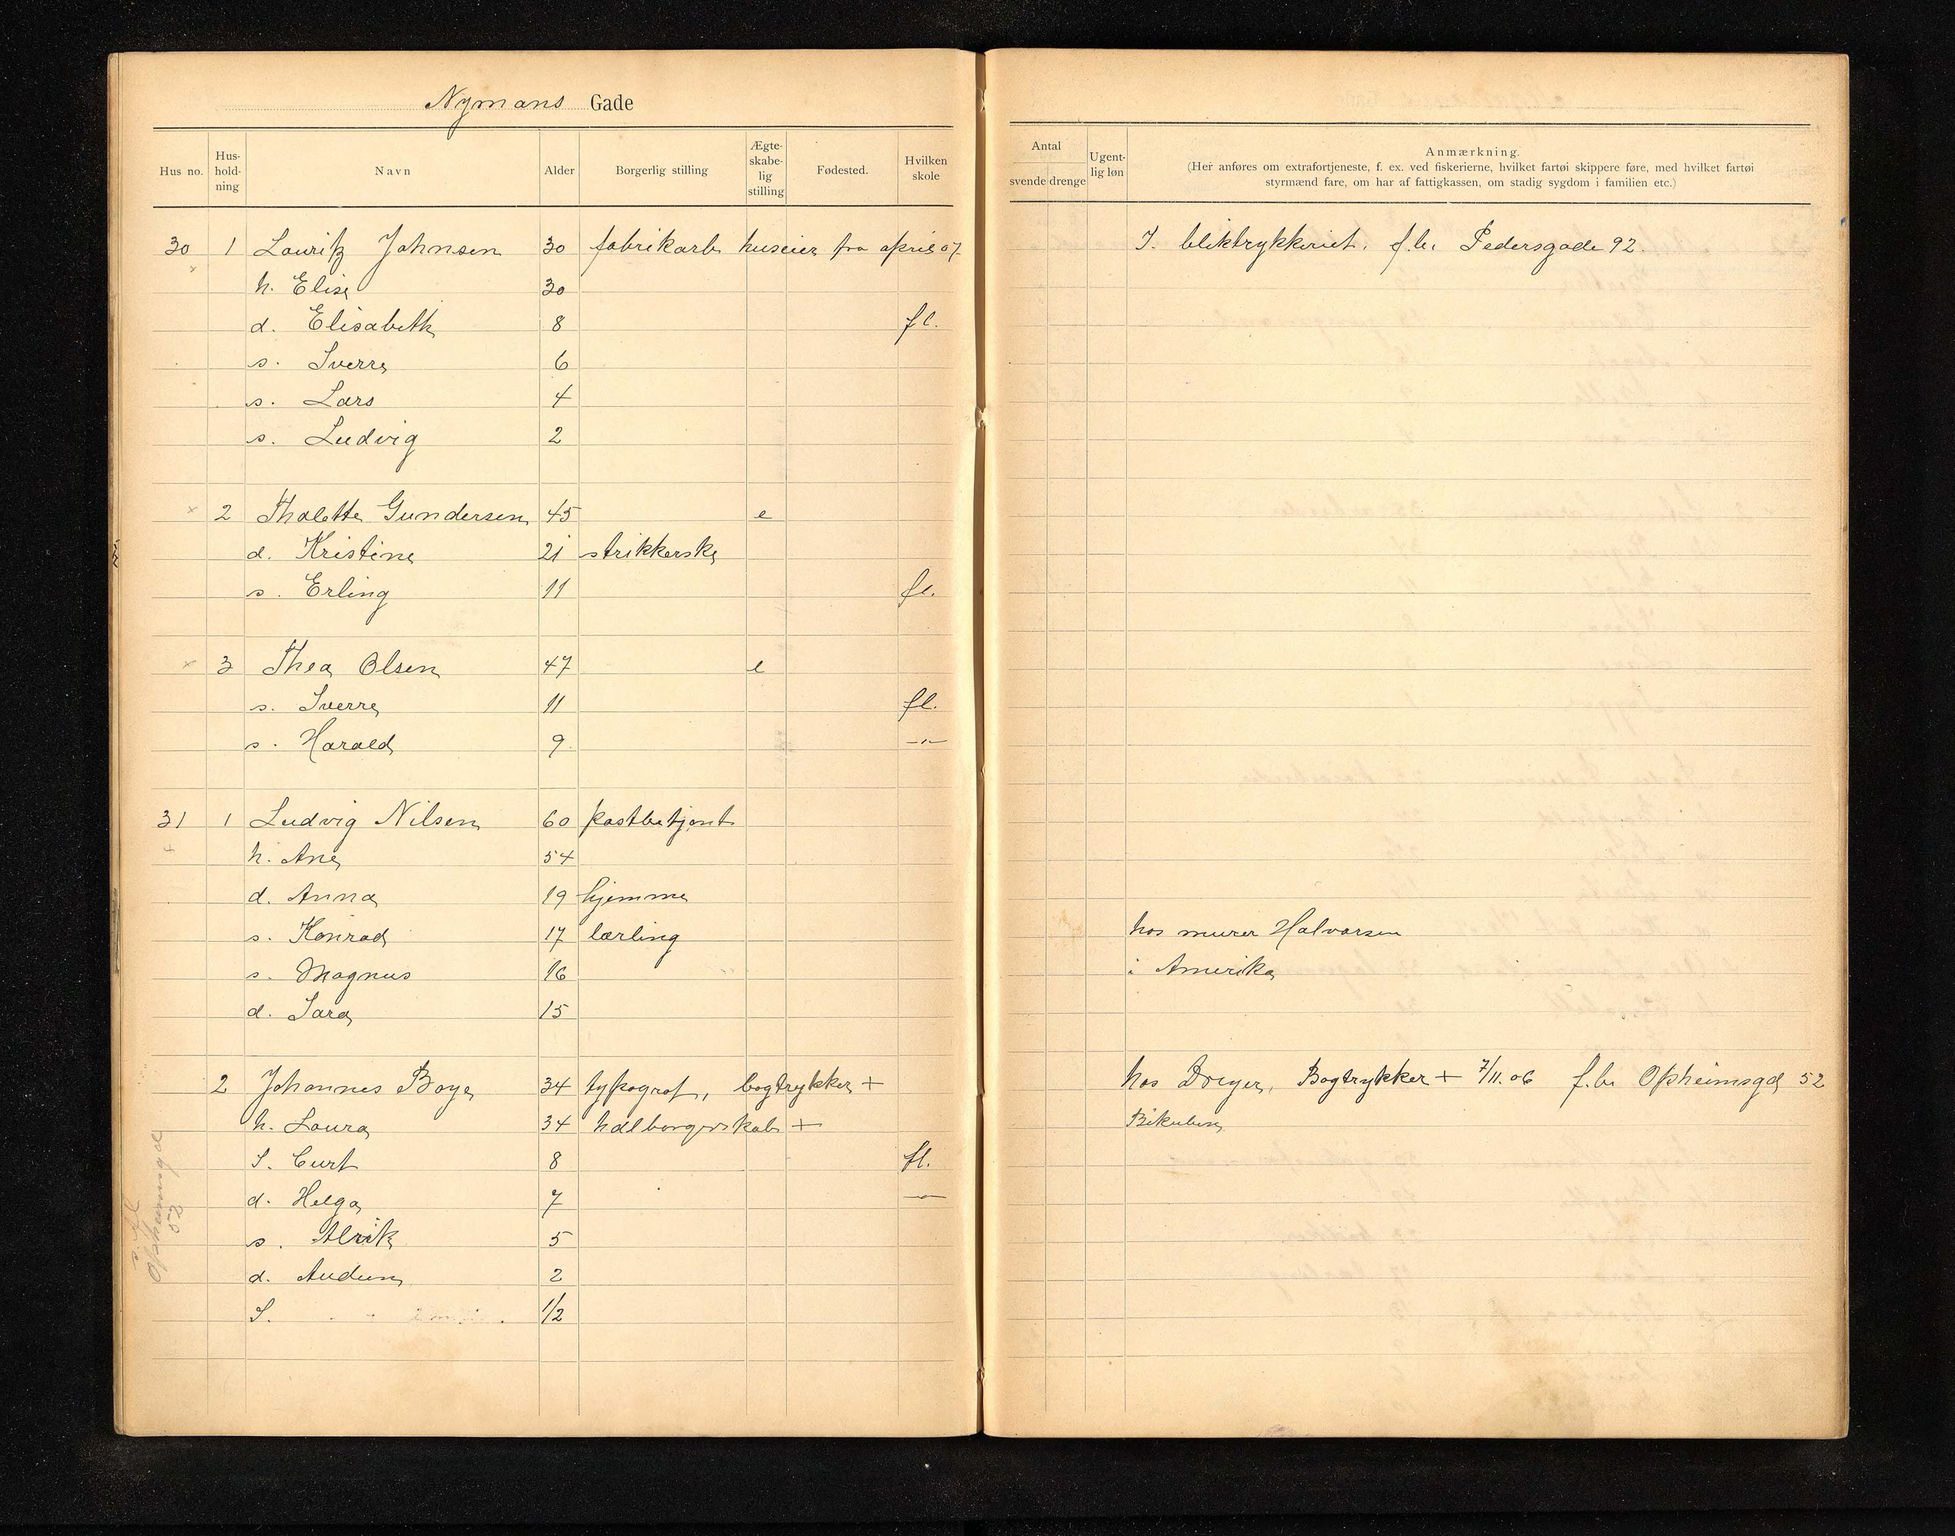 Nymans Gade
Hus no. Hus-hold-ning Navn Alder Borgerlig stilling Ægte-skabe-lig stilling Fødested. Hvilken skole
30 1 Lauritz Johnsen 30 fabrikarb huseier fra april 07
h. Elise 30
d. Elisabeth 8 fl.
s. Sverre 6
s. Lars 4
s. Ludvig 2
2 Thalette Gundersen 45 e
d. Kristine 21 strikkerske
s. Erling 11 fl.
3 Thea Olsen 47 e
s. Sverre 11 fl.
s. Harald 9 —"—
31 1 Ludvig Nilsen 60 postbetjent
h. Ane 54
d. Anna 19 hjemme
s. Konrad 17 lærling
s. Magnus 16
d. Sara 15
2 Johannes Boye 34 typograf, bogtrykker +
h. Laura 34 halborgerskab +
S. Curt 8 fl.
d. Helga 7 —"—
s. Alrik 5
d. Audun 2
S. 1/2
Opheimsgd
52
Antal
svende drenge Ugent-lig løn Anmærkning.
(Her anføres om extrafortjeneste, f. ex. ved fiskerierne, hvilket fartøi skippere føre, med hvilket fartøi
styrmænd fare, om har af fattigkassen, om stadig sygdom i familien etc.)
I. bliktrykkeriet. f.b. Pedersgade 92.
hos murer Halvorsen
i Amerika
hos Dreyer, Bogtrykker + 7/11.06 f.b. Opheimsgd 52
Bikuben